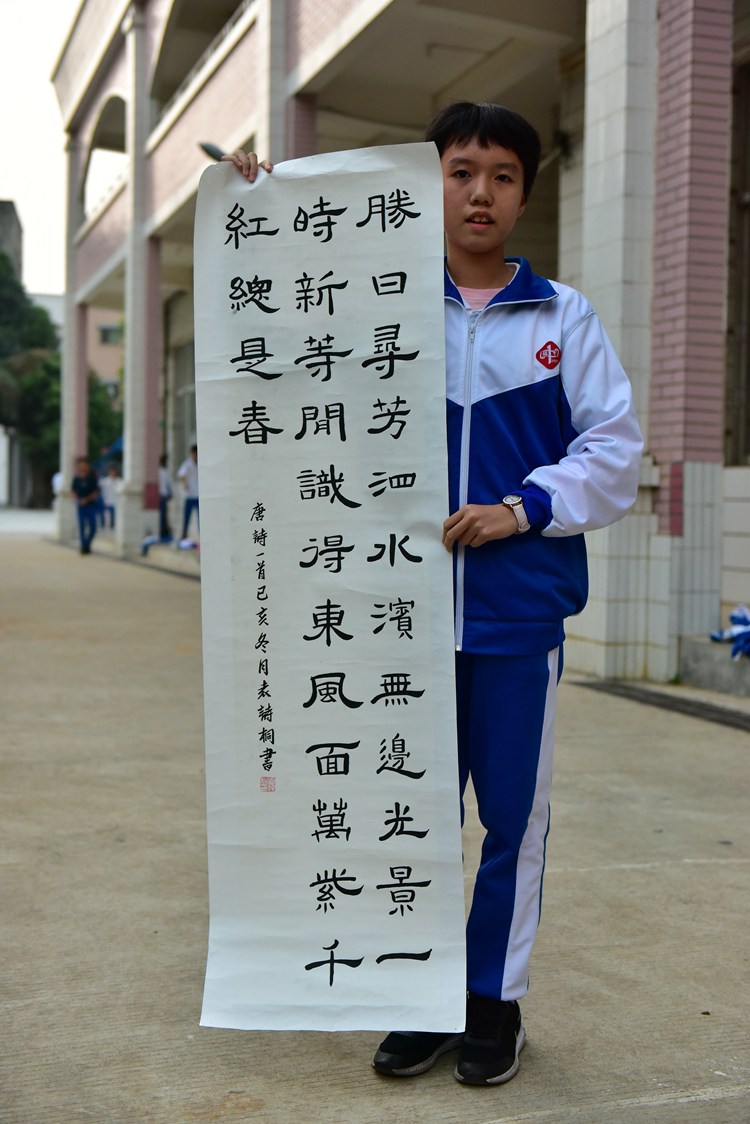 勝日尋芳泗水濱無邊光景一
時新等閒識得東風面萬紫千
紅總是春
唐詩一首己亥冬月袁詩桐書